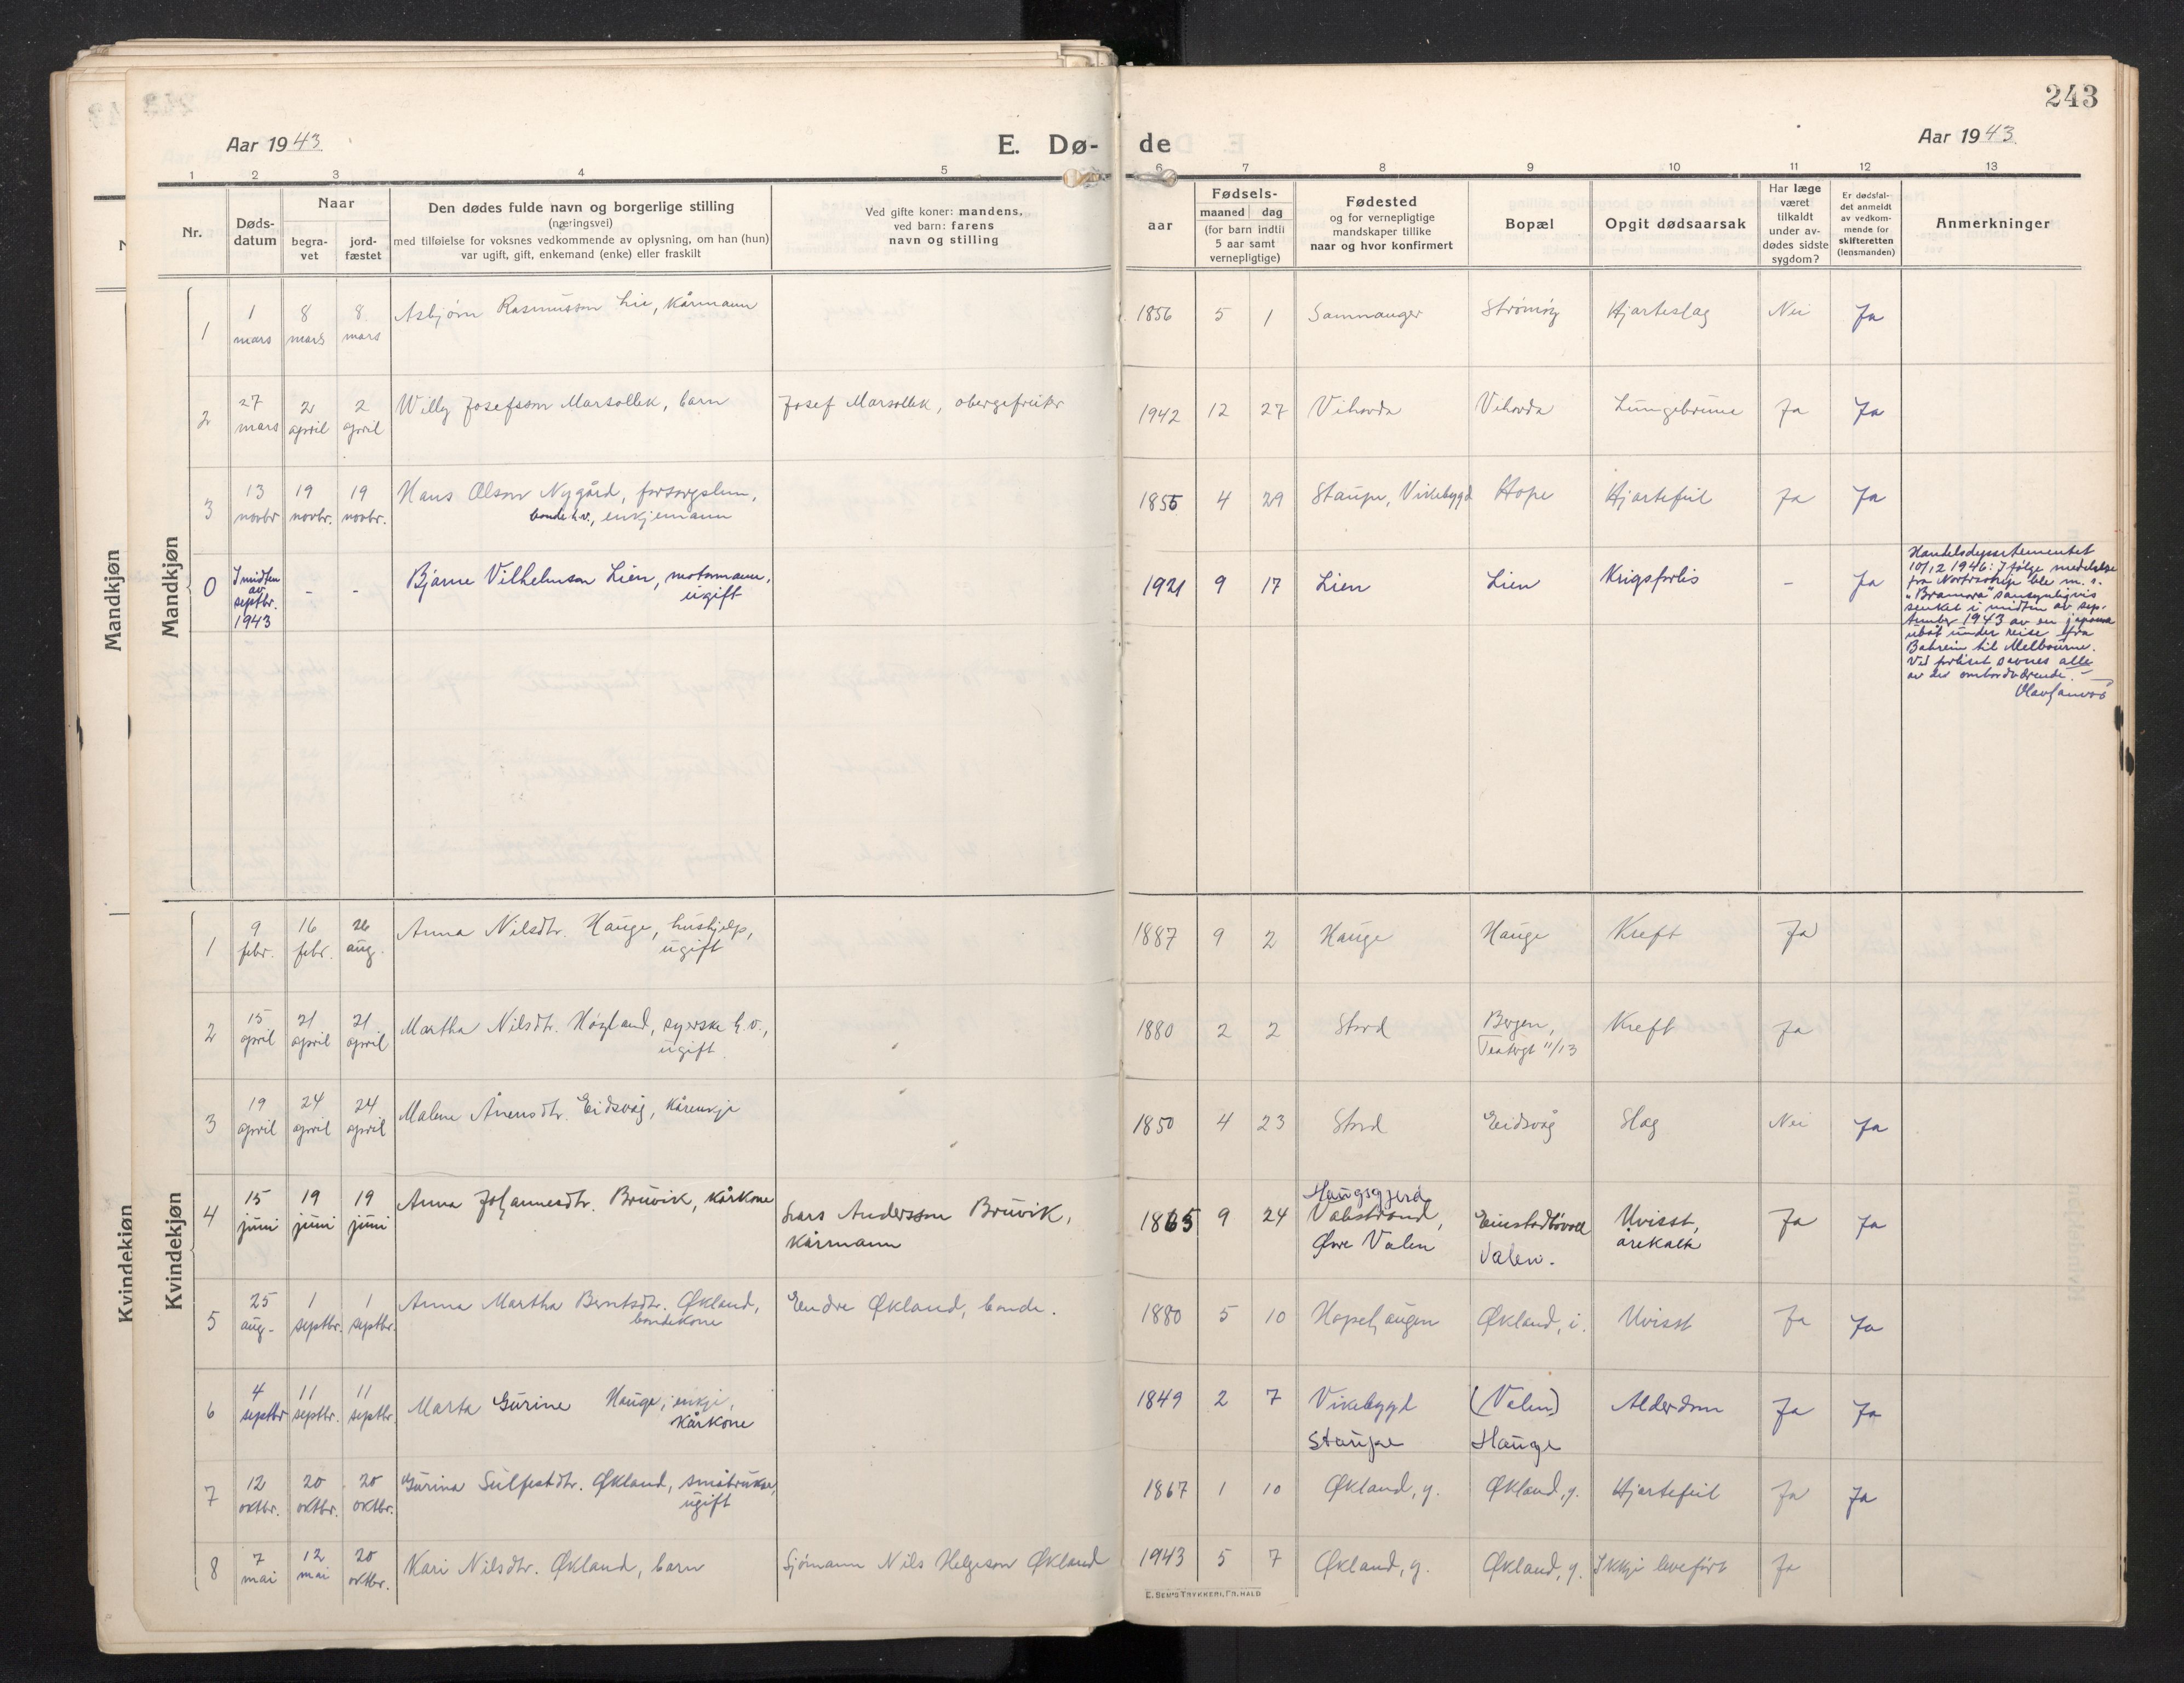 243
Aar 1943
E. Dø-
de
Aar 1943
1 2 3 4 5 6 7 8 9 10 11 12 13
Nr.
Døds-
datum
Naar
begra-
vet
jord-
fæstet
Den dødes fulde navn og borgerlige stilling
(næringsvei)
med tilføielse for voksnes vedkommende av oplysning, om han (hun)
var ugift, gift, enkemand (enke) eller fraskilt
Ved gifte koner: mandens,
ved barn: farens
navn og stilling
aar
Fødsels-
maaned dag
(for barn indtil
5 aar samt
vernepligtige)
Fødested
og for vernepligtige
mandskaper tillike
naar og hvor konfirmert
Bopæl
Opgit dødsaarsak
Har læge
været
tilkaldt
under av-
dødes sidste
sygdom?
Er dødsfal-
det anmeldt
av vedkom-
mende for
skifteretten
(lensmanden)
Anmerkninger
Mandkjøn
Mandkjøn
1
1 mars
8 mars
8 mars
Asbjørn Rasmusson Lie, kårmann
1856 5 1
Samnanger
Strømøy
Hjarteslag
Nei
Ja
2
27 mars
2 april
2 april
Willy Josefson Marsollek, barn
Josef Marsollek, obergefreiter
1942 12 27
Vihovda
Vihovda
Lungebrune
Ja
Ja
3
13 novbr
19 novbr.
19 novbr.
Hans Olson Nygård, forsorgslem,
bonde h.v., enkjemann
1855 4 29
Staupe, Vikebygd
Hope
Hjartefeil
Ja
Ja
0
I midten
av
septbr.
1943
- -
Bjarne Vilhelmson Lien, motormann,
ugift
1921 9 17
Lien
Lien
Krigsforlis
-
Ja
Handelsdepartementet
10/12 1946: I følge meddelelse
fra Nortraship ble m. s.
"Bramora" sansynligvis
senket i midten av sep-
tember 1943 av en japansk
ubåt under reise fra
Bahrein til Melbourne.
Ved forliset savnes alle
av de ombordværende.
Kvindekjøn
Kvindekjøn
1
9 febr.
16 febr.
26 aug.
Anna Nilsdtr. Hauge, hushjelp,
ugift
1887 9 2
Hauge
Hauge
Kreft
Ja
2
15 april
21 april
21 april
Martha Nilsdtr. Høyland, syerske h.v.,
ugift
1880 2 2
Stord
Bergen,
Teatergt 11/13
Kreft
Ja
3
19 april
24 april
24 april
MaleneÅnensdtr. Eidsvåg, kårenkje
1850 4 23
Stord
Eidsvåg
Slag
Nei
Ja
4
15 juni
19 juni
19 juni
Anna Johannesdtr. Bruvik, kårkone
Lars Andersson Bruvik,
kårmann
1865 9 24
Haugsgjerd
Valestrand,
Øvre Valen
Valen.
Uvisst,
årekalk
Ja
Ja
5
25 aug.
1 septbr.
1 septbr.
Anna Martha Berntsdtr. Økland,
bondekone
Endre Økland, bonde.
1880 5 10
Hopehaugen
Økland, i.
Uvisst
Ja
Ja
6
4 septbr
11 septbr.
11 septbr.
Marta Gurine Hauge, enkje,
kårkone
1849 2 7
Vikebygd
Staupe
(Valen)
Hauge
Alderdom
Ja
Ja
7
12 oktbr.
20 oktbr.
20 oktbr.
Gurina Sulfestdtr. Økland, småbrukar,
ugift
1867 1 10
Økland, y.
Økland, y.
Hjartefeil
Ja
Ja
8
7 mai
12 mai
20 oktbr.
Kari Nilsdtr. Økland, barn
Sjømann Nils Helgeson Økland
1943 5 7
Økland, y.
Økland, y.
Ikkje liveført
Ja
E. SEM'S TRYKKERI, FR.HALD